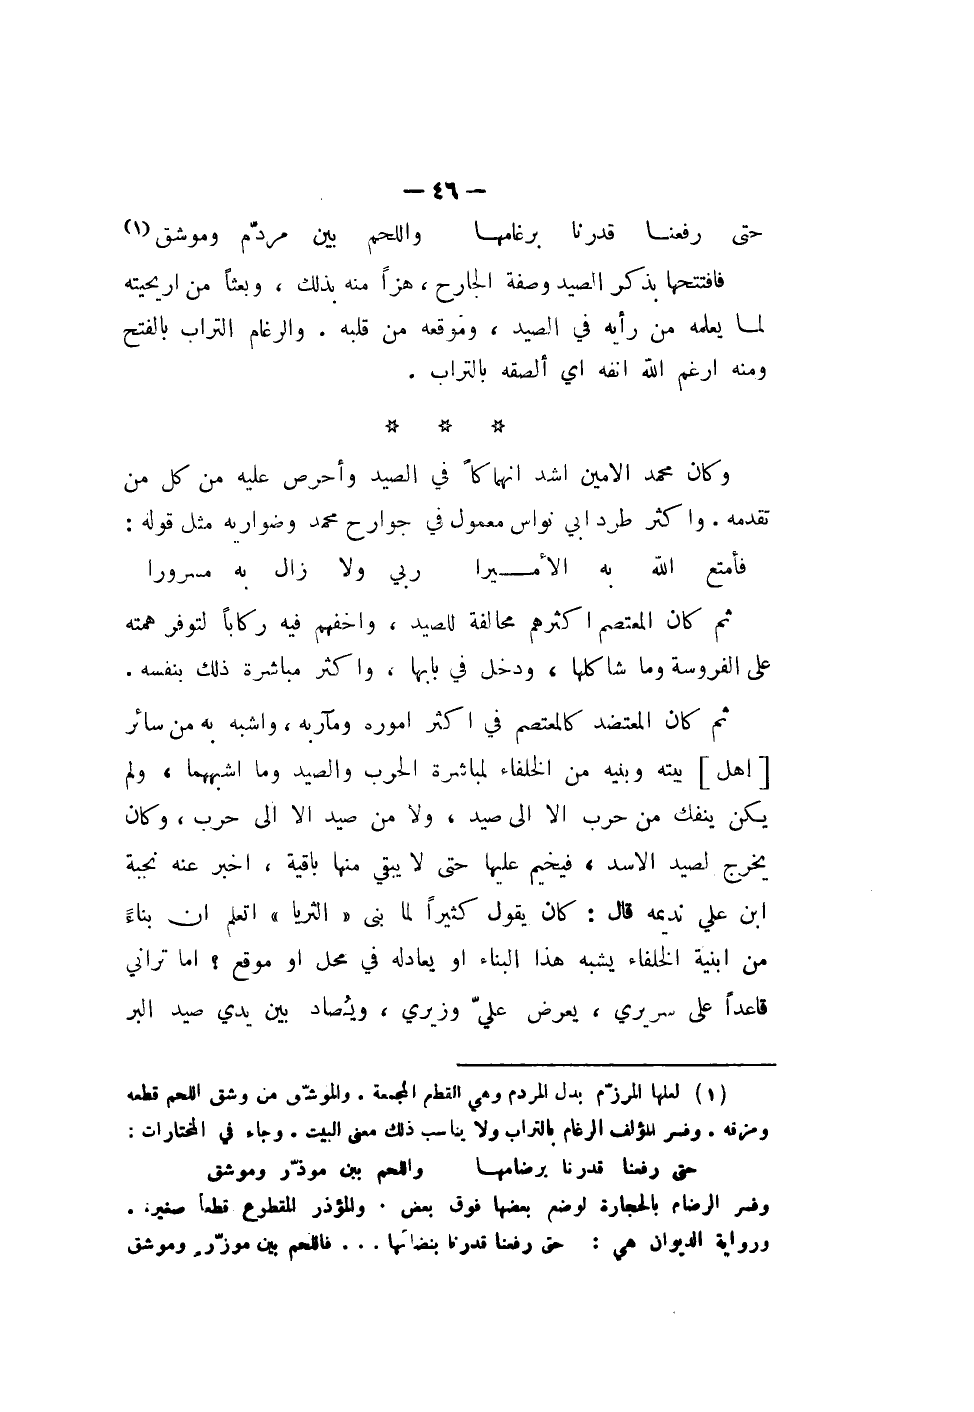 — ٤٦ —
حتى رفعنــا قدرنا برغامهــا واللحم بين مردّم وموشق (١)
فافتتحها بذكر الصيد وصفة الجارح ، هزاً منه بذلك ، وبعثاً من اريحيته
لمــا يعلمه من رأيه في الصيد ، وموقعه من قلبه . والرغام التراب بالفتح
ومنه ارغم الله انفه اي ألصقه بالتراب .
* * *
وكان محمد الامين اشد انهماكاً في الصيد وأحرص عليه من كل من
تقدمه . واكثر طرد ابي نواس معمول في جوارح محمد وضواريه مثل قوله :
فأمتع الله به الأمــــيرا ربي ولا زال به مسرورا
ثم كان المعتصم اكثرهم محالفة للصيد ، واخفهم فيه ركاباً لتوفر همته
على الفروسة وما شاكلها ، ودخل في بابها ، واكثر مباشرة ذلك بنفسه .
ثم كان المعتضد كالمعتصم في اكثر اموره ومآربه ، واشبه به من سائر
[ اهل ] بيته وبنيه من الخلفاء لمباشرة الحرب والصيد وما اشبههما ، ولم
يكن ينفك من حرب الا الى صيد ، ولا من صيد الا الى حرب ، وكان
يخرج لصيد الاسد ، فيخيم عليها حتى لا يبقي منها باقية ، اخبر عنه نجبة
ابن علي نديمه قال : كان يقول كثيراً لما بنى « الثريا » اتعلم ان بناءً
من ابنية الخلفاء يشبه هذا البناء او يعادله في محل او موقع ؟ اما تراني
قاعداً على سريري ، يعرض عليّ وزيري ، ويُصاد بين يدي صيد البر
(١) لعلها المرزّم بدل المردم وهي القطم المجمعة . والموشّق من وشق اللحم قطعه
ومزقه . وفسر المؤلف الرغام بالتراب ولا يناسب ذلك معنى البيت . وجاء في المختارات :
حتى رفعنا قدرنا برضامهــا واللحم بين موذّر وموشق
وفسر الرضام بالحجارة لوضع بعضها فوق بعض . والمؤذر المقطوع قطعاً صغيرة .
ورواية الديوان هي : حتى رفعنا قدرنا بنضائها . . . فاللحم بين موزّر وموشق